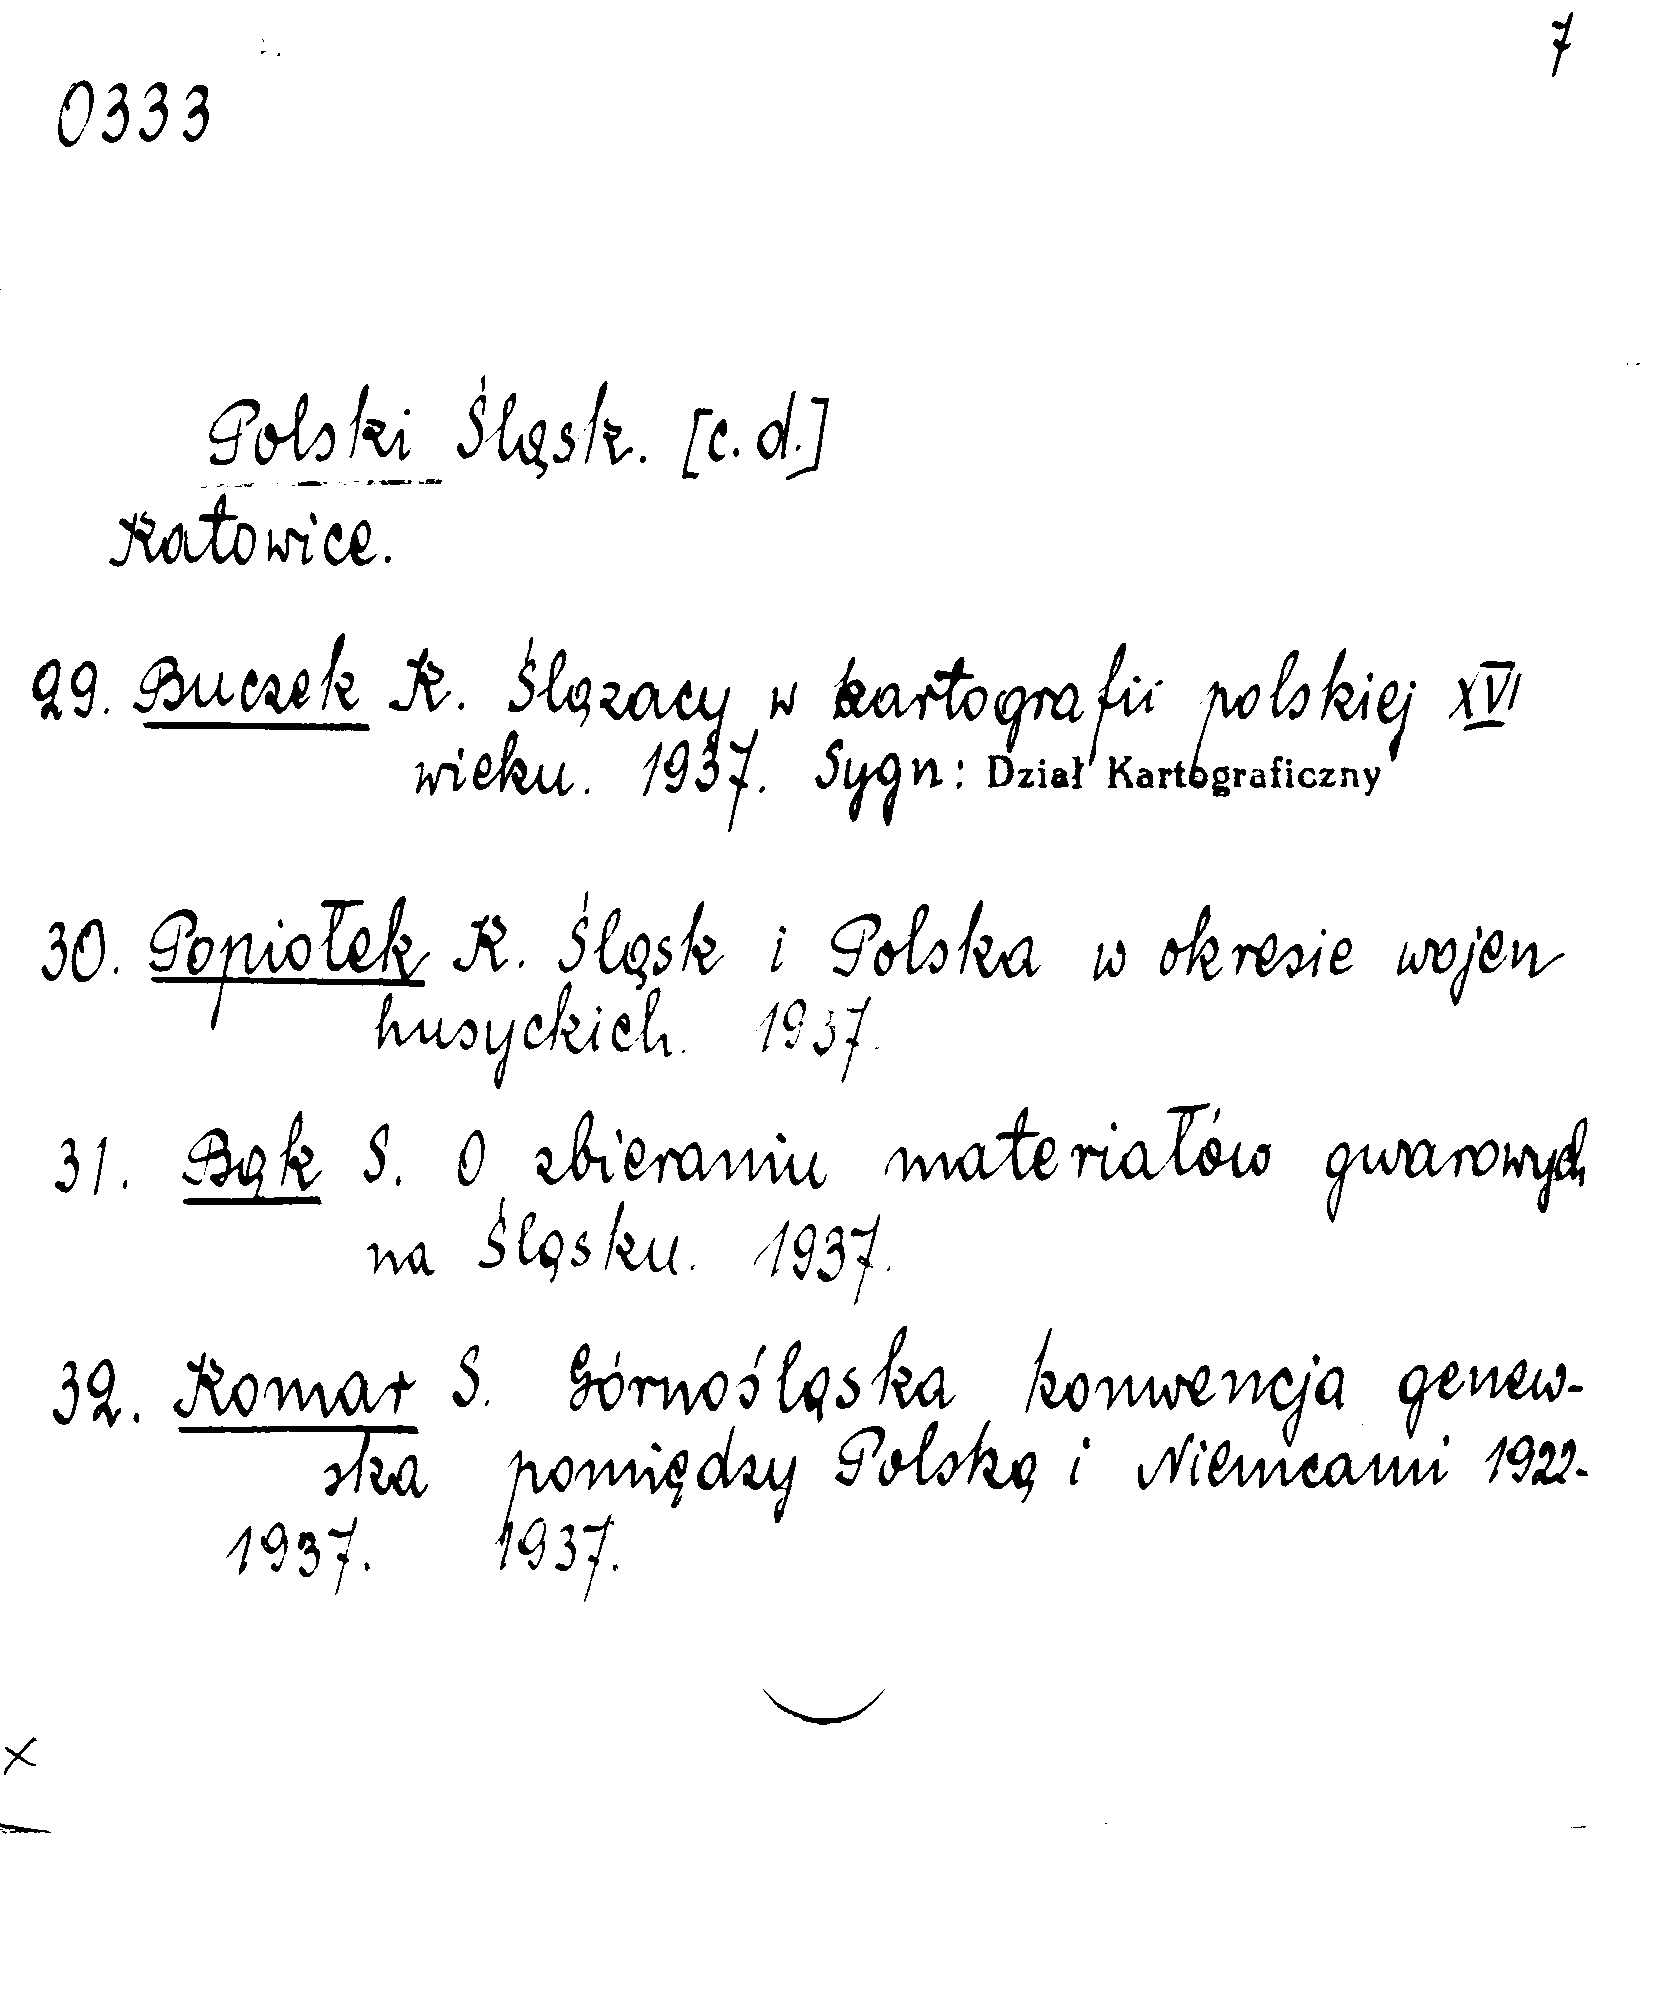 7
0333
Polski Śląsk. [c.d.]
Katowice.
29. Buczek K. Ślązacy w kartografii polskiej XVI
wieku. 1937. Sygn: Dział Kartograficzny
30. Popiołek K. Śląsk i Polska w okresie wojen
husyckich. 1937.
31. Bąk S. O zbieraniu materiałów gwarowych
na Śląsku. 1937.
32. Komar S. Górnośląska konwencja genew-
ska pomiędzy Polską i Niemcami 1922-
1937. 1937.
x